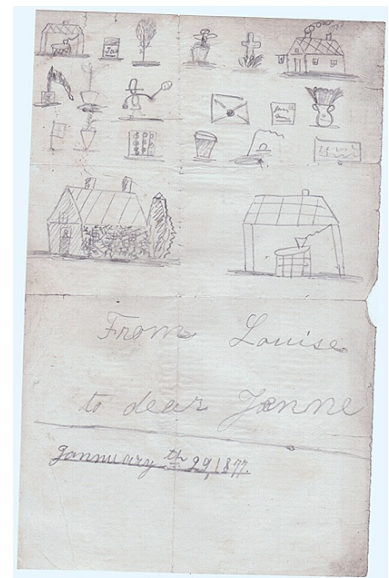 From Louise
to dear Jenne
Jannuary th 29, 1877.